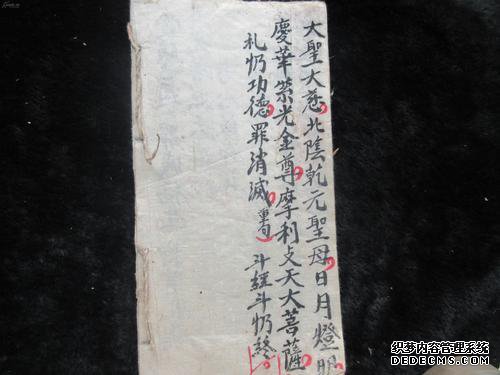 大聖大慈北陰乾元聖母日月燈明
慶華紫光金尊摩利支天大菩薩
礼忏功德罪消滅重句斗經斗忏終
织梦内容管理系统
DEDECMS.COM